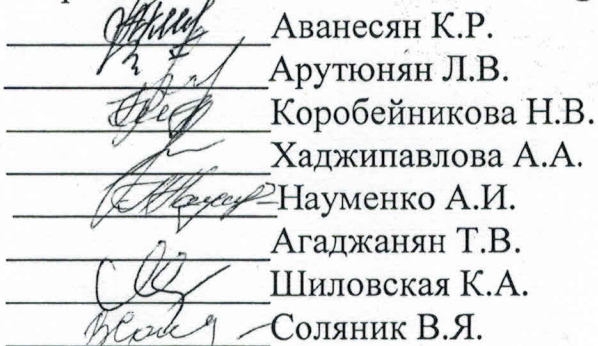 Аванесян К.Р.
Арутюнян Л.В.
Коробейникова Н.В.
Хаджипавлова А.А.
Науменко А.И.
Агаджанян Т.В.
Шиловская К.А.
Соляник В.Я.